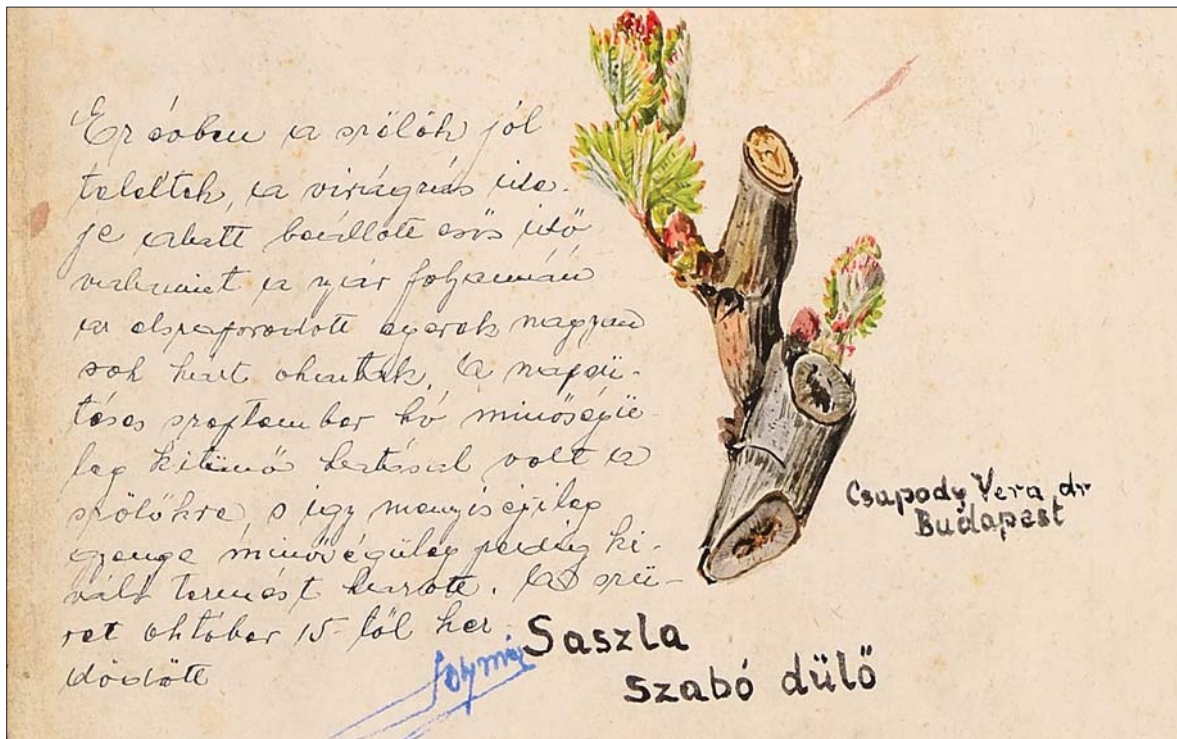 Ez évben a szőlők jól
teleltek, a virágzás ide-
je alatt beállott esős idő
valamint a nyár folyamán
az elszaporodott egerek nagyon
sok kárt okoztak. A napsü-
téses szeptember hó minőségi-
leg kitünő hatással volt a
szőlőkre, s így menyiségileg
gyenge minőségüleg pedig ki-
váló termést hozott. A szü-
ret október 15-től kez-
dődött
Csapody Vera dr
Budapest
Saszla
szabó dülő